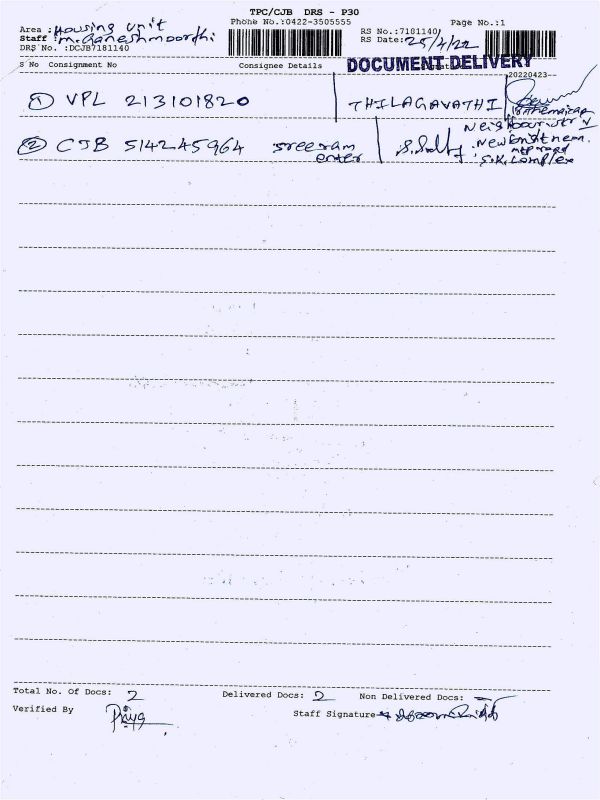 TPC/CJB DRS - P30
Phone No.:0422-3505555
Page No.:1
Area : Housing unit
Staff : m.Ganeshmoorthi
DRS No. :DCJB7181140
RS No.:7181140
RS Date: 25/4/22
DOCUMENT DELIVERY
20220423-
S No Consignment No Consignee Details
① VPL 213101820 THILAGAVATHI
② CJB 514245964 sreeram enter
S.K. Complex
Total No. Of Docs: 2 Delivered Docs: 2 Non Delivered Docs: -
Verified By Priya
Staff Signature